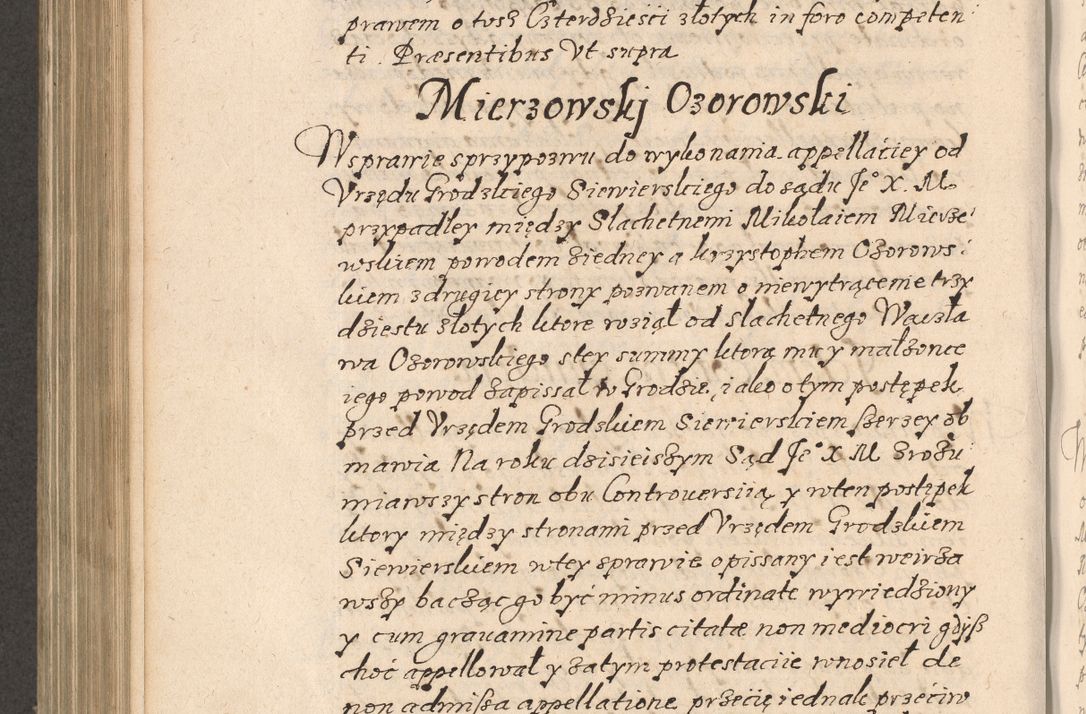 prawem o tysz Czterdziesci złotych in foro competen
ti. Præsentibus Vt supra
Mierzowskj Ozorowski
Wsprawie sprzypozwu do wykonania appellaciey od
Vrzędu Grodzkiego Siewierskiego do sądu Je° X. M.
przypadley między Slachetnemi Mikołaiem Mierze
wskiem powodem ziedney a krzysztophem Ozorows:
kiem z drugiey strony pozwanem o niewytrącenie trzy
dziestu złotych ktore wziął od slachetnego Waczła
wa Ozorowskiego stey summy ktorą mu y małzonce
iego powod zapissał w Grodzie, iako o tym postępek
przed Vrzędem Grodzkiem Siewierskiem szerzey ob
mawia Na roku dzisieiszym Sąd Je° X M zrozu
miawszy stron obu Controuersiią y wten postępek
ktory między stronami przed Vrzędem Grodzkiem
Siewierskiem wtey sprawie opissany iest weirza
wszy baczącgo być minus ordinate wywiedziony
y cum grauamine partis citatæ non mediocri gdysz
choć appellował y zatym protestaciie wnosieł de
non admissa appellatione przecię iednak przeciw